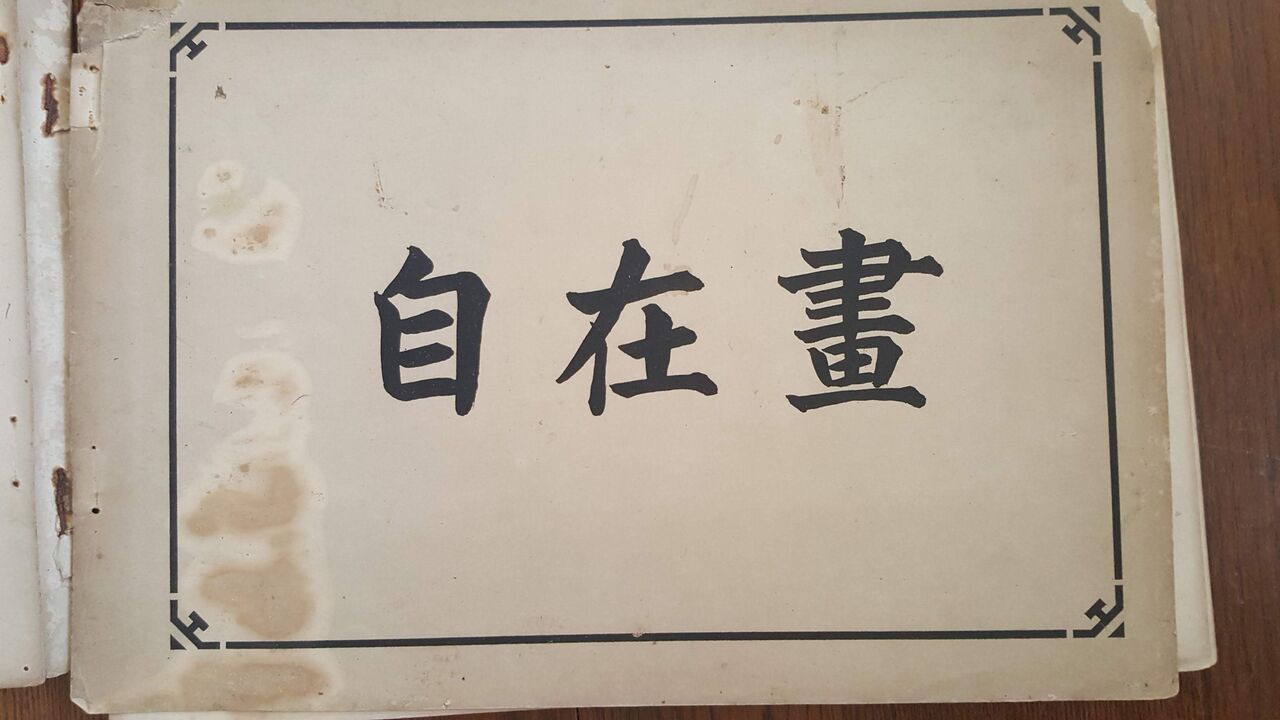 自在畫